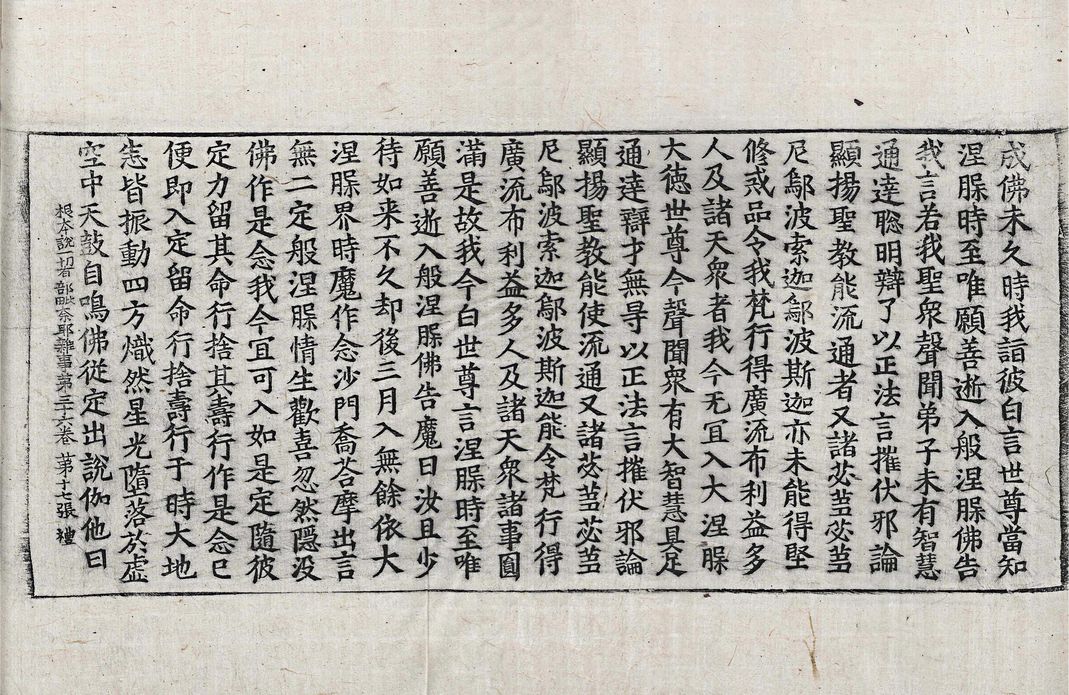 成佛未久時我詣彼白言世尊當知
涅槃時至唯願善逝入般涅槃佛告
我言若我聖衆聲聞弟子未有智慧
通達聦明辯了以正法言摧伏邪論
顯揚聖教能流通者又諸苾芻苾芻
尼鄔波索迦鄔波斯迦亦未能得堅
修惑品令我梵行得廣流布利益多
人及諸天衆者我今无冝入大涅槃
大徳世尊今聲聞衆有大智慧具足
通達辯才無㝵以正法言摧伏邪論
顯揚聖教能使流通又諸苾芻苾芻
尼鄔波索迦鄔波斯迦能令梵行得
廣流布利益多人及諸天衆諸事圓
滿是故我今白世尊言涅槃時至唯
願善逝入般涅槃佛告魔曰汝且少
待如来不久却後三月入無餘依大
涅槃界時魔作念沙門喬荅摩出言
無二定般涅槃情生歡喜忽然隱没
佛作是念我今冝可入如是定隨彼
定力留其命行捨其壽行作是念已
便即入定留命行捨壽行于時大地
悉皆振動四方熾然星光墮落於虚
空中天鼓自鳴佛従定出說伽他曰
根本說一切有部毗奈耶雜事第三十六卷 第十七張 禮